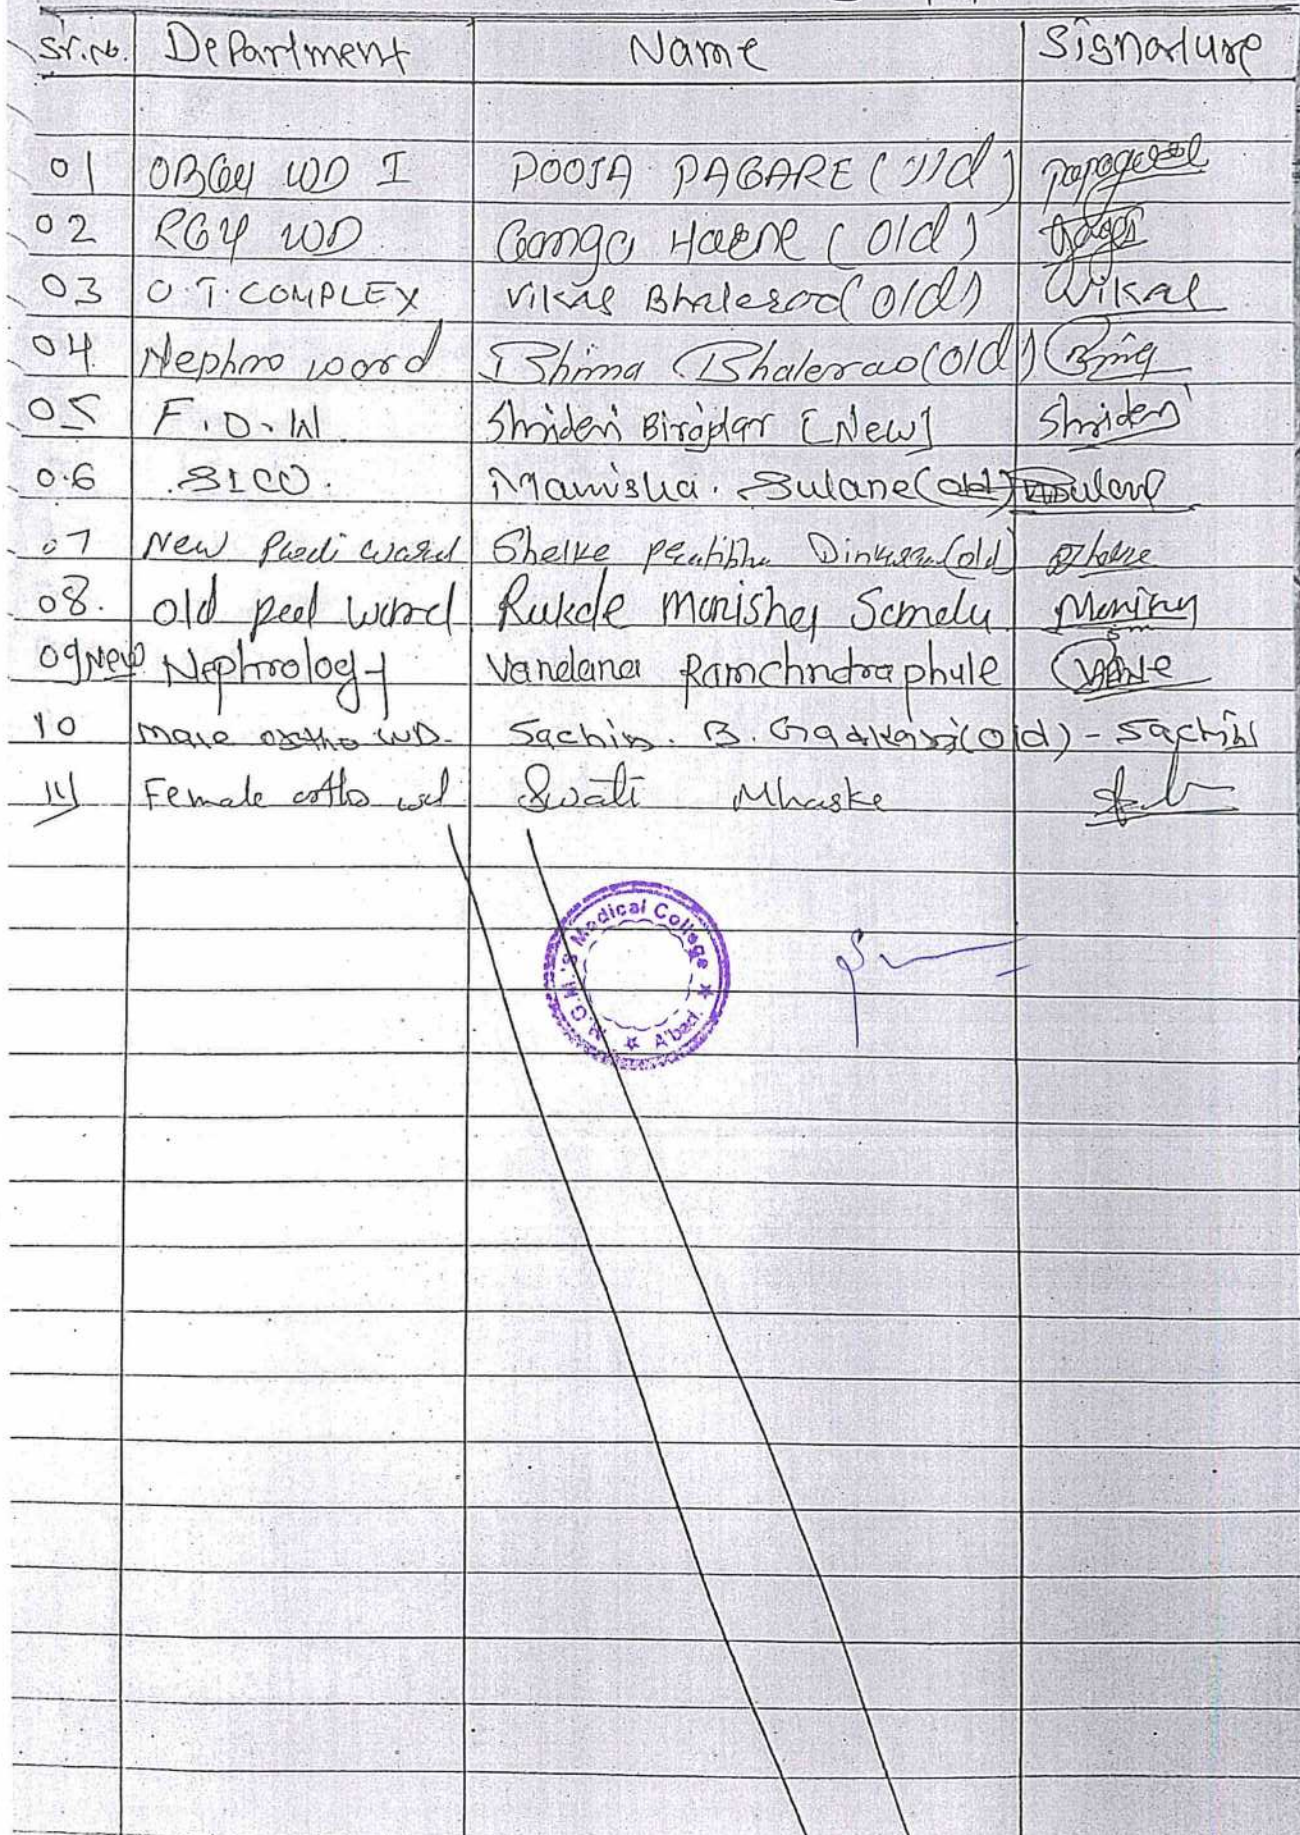 Sr.No. Department Name Signature
01 OBGY WD I POOJA PAGARE (Old)
02 RGY WD Ganga (Old)
03 O.T. COMPLEX Vikas Bhalerao (Old) Vikas
04 Nephro ward Bhima Bhalerao (Old)
05 F.O.W. Shridevi Birajdar [New] Shridevi
0.6 SICU. Manisha. Sulane (old)
07 New Paedi ward Shelke (old)
08. old ped ward Manisha
09 New Nephrology Vandana Ramchndra phule
10 male ortho WD. Sachin. B. Gadkari (old) - Sachin
11) Female ortho wd Swati Mhaske
M.G.M.'s Medical College ☆ A'bad. ☆